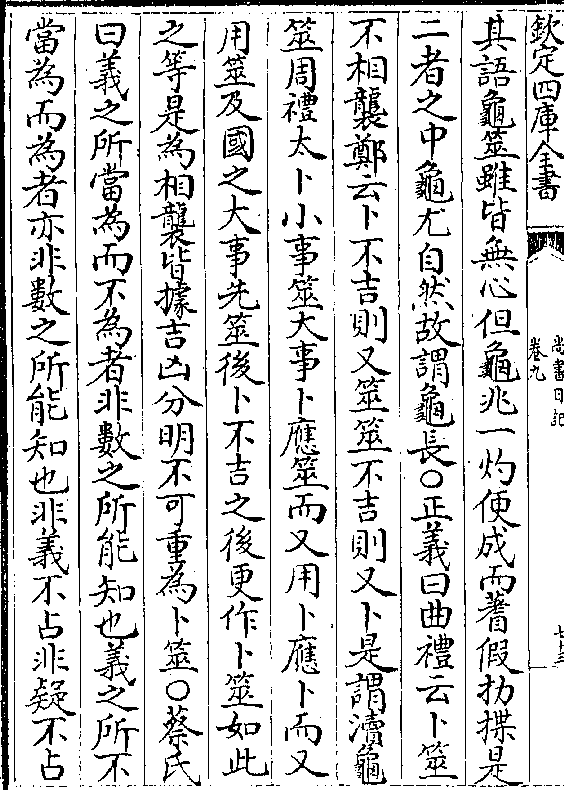 欽定四庫全書
尚書日記
卷九
七十三
其語龜筮雖皆無心但龜兆一灼便成而蓍假扐揲是
二者之中龜尤自然故謂龜長○正義曰曲禮云卜筮
不相襲鄭云卜不吉則又筮筮不吉則又卜是謂瀆龜
筮周禮太卜小事筮大事卜應筮而又用卜應卜而又
用筮及國之大事先筮後卜不吉之後更作卜筮如此
之等是為相襲皆據吉凶分明不可重為卜筮○蔡氏
曰義之所當為而不為者非數之所能知也義之所不
當為而為者亦非數之所能知也非義不占非疑不占